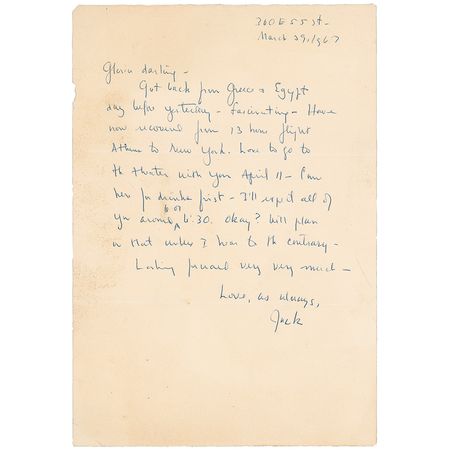 360 E 55 St -
March 29, 1967
Gloria darling -
Got back from Greece & Egypt
day before yesterday - fascinating - Have
now recovered from 13 hour flight
Athens to New York. Love to go to
the theater with you April 11 -
here for drinks first - I'll expect all of
you around 6 or 6:30. Okay? Will plan
on that unless I hear to the contrary -
Looking forward very very much -
Love, as always,
Jack